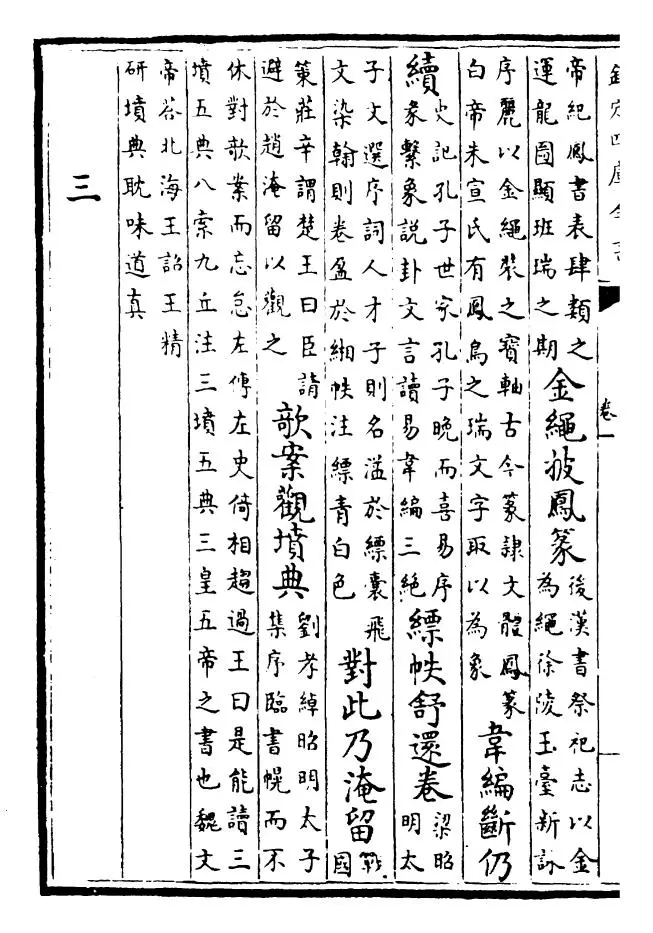 欽定四庫全書
卷一
帝紀鳳書表肆類之
運龍圖顯班瑞之期
金繩披鳳篆
後漢書祭祀志以金
為繩徐陵玉臺新詠
序麗以金繩裝之寶軸古今篆隸文體鳳篆
白帝朱宣氏有鳳鳥之瑞文字取以為象
韋編斷仍
續
史記孔子世家孔子晚而喜易序
彖繫象說卦文言讀易韋編三絕
縹帙舒還卷
梁昭
明太
子文選序詞人才子則名溢於縹囊飛
文染翰則卷盈於緗帙注縹青白色
對此乃淹留
戰
國
策莊辛謂楚王曰臣請
避於趙淹留以觀之
欹案觀墳典
劉孝綽昭明太子
集序臨書幌而不
休對欹案而忘怠左傳左史倚相趨過王曰是能讀三
墳五典八索九丘注三墳五典三皇五帝之書也魏文
帝荅北海王詔王精
研墳典耽味道真
三